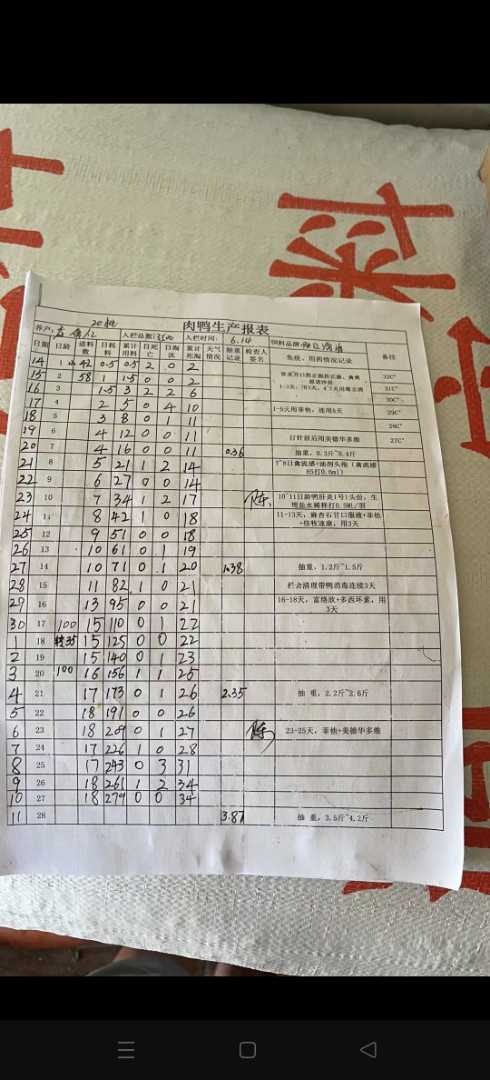 肉鸭生产报表
养户: 20批 入栏总数: 入栏时间: 6.14 饲料品牌:
日期 日龄 进料数 日耗料 累计用料 日死亡 日淘汰 累计死淘 天气情况 称重记录 检查人签名 免疫、用药情况记录 备注
14 1 42 0.5 0.5 2 0 2 32C°
15 2 58 1 1.5 0 0 2
16 3 1.5 3 2 2 6 31C°
17 4 2 5 0 4 10 30C°
18 5 3 8 0 1 11 1-5天用 29C°
19 6 4 12 0 0 11 28C°
20 7 4 16 0 0 11 0.36 27C°
抽重,0.3斤~0.4斤
21 8 5 21 1 2 14 7~8日禽流感+油剂头孢
22 9 6 27 0 0 14
23 10 7 34 1 2 17 陈 10~11日龄鸭肝炎1号1头份,生理盐水稀释打0.5ML/羽
24 11 8 42 1 0 18 11-13天,麻杏石甘口服液
25 12 9 51 0 0 18
26 13 10 61 0 1 19
27 14 10 71 0 1 20 1.38 抽重,1.2斤~1.5斤
28 15 11 82 1 0 21 栏舍清理带鸭消毒连续3天
29 16 13 95 0 0 21 16-18天,富络欣+多西环素,用3天
30 17 100 15 110 0 1 22
1 18 转35 15 125 0 0 22
2 19 15 140 0 1 23
3 20 100 16 156 1 1 25
4 21 17 173 0 1 26 2.35 抽重,2.2斤~2.6斤
5 22 18 191 0 0 26
6 23 18 209 0 1 27 陈 23-25天,菲他+美德华多维
7 24 17 226 1 0 28
8 25 17 243 0 3 31
9 26 18 261 1 2 34
10 27 18 279 0 0 34
11 28 3.87 抽重,3.5斤~4.2斤